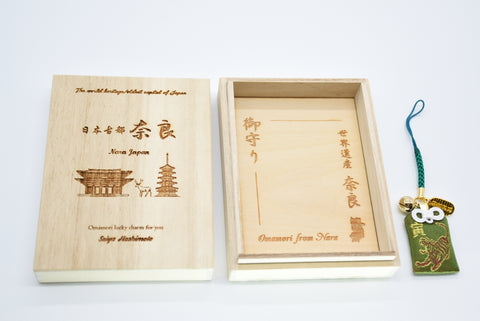 The world heritage/oldest capital of Japan
日本古都 奈良
Nara Japan
Omamori lucky charm for you
Saiyo Hashimoto
御守り
世界遺産 奈良
Omamori from Nara
寅